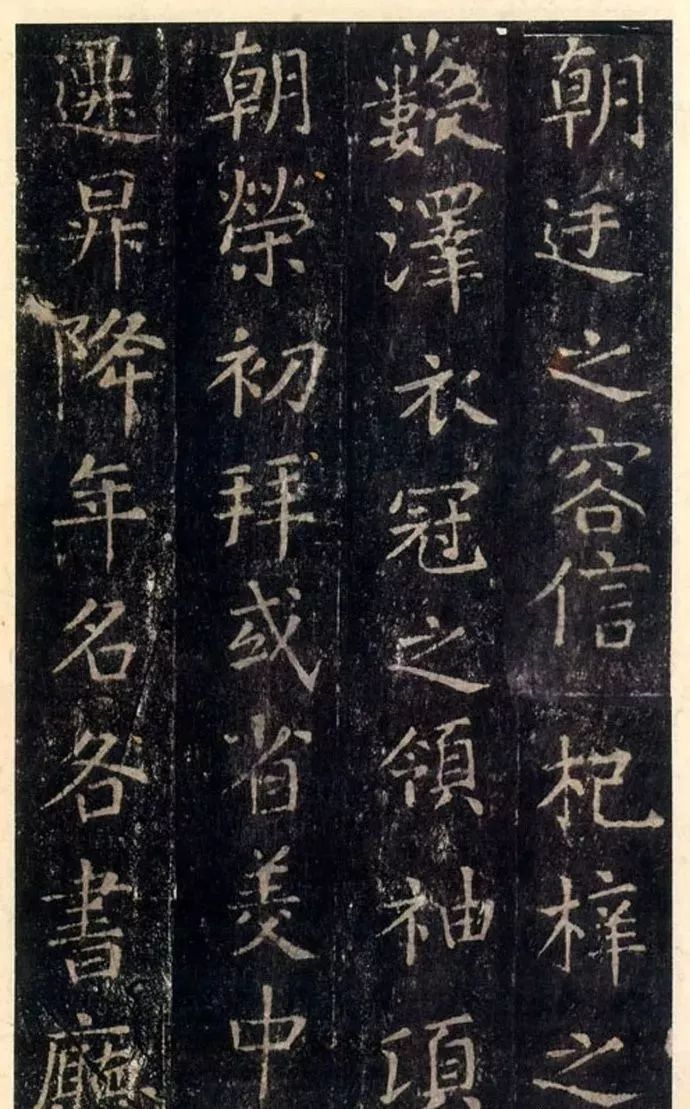 朝迋之容信杞梓之
藪澤衣冠之領袖項
朝榮初拜或省羙中
遷昇降年名各書廳